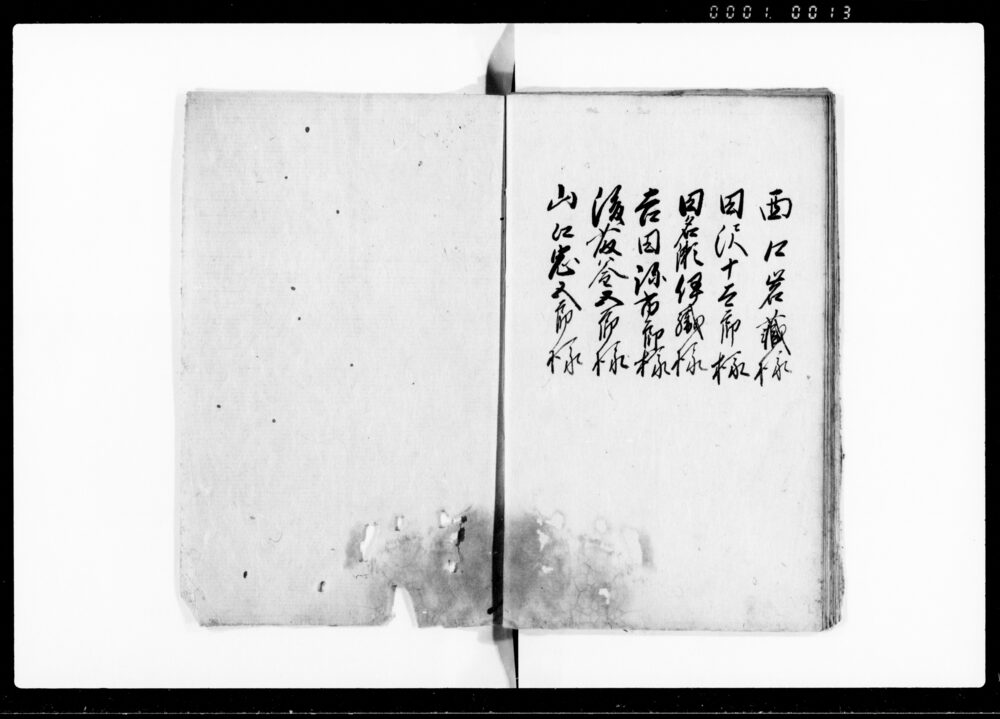 0001 0013
西口岩蔵様
田沢十三郎様
田名瀬伊織様
吉田源市郎様
後藤谷又郎様
山口忠又郎様